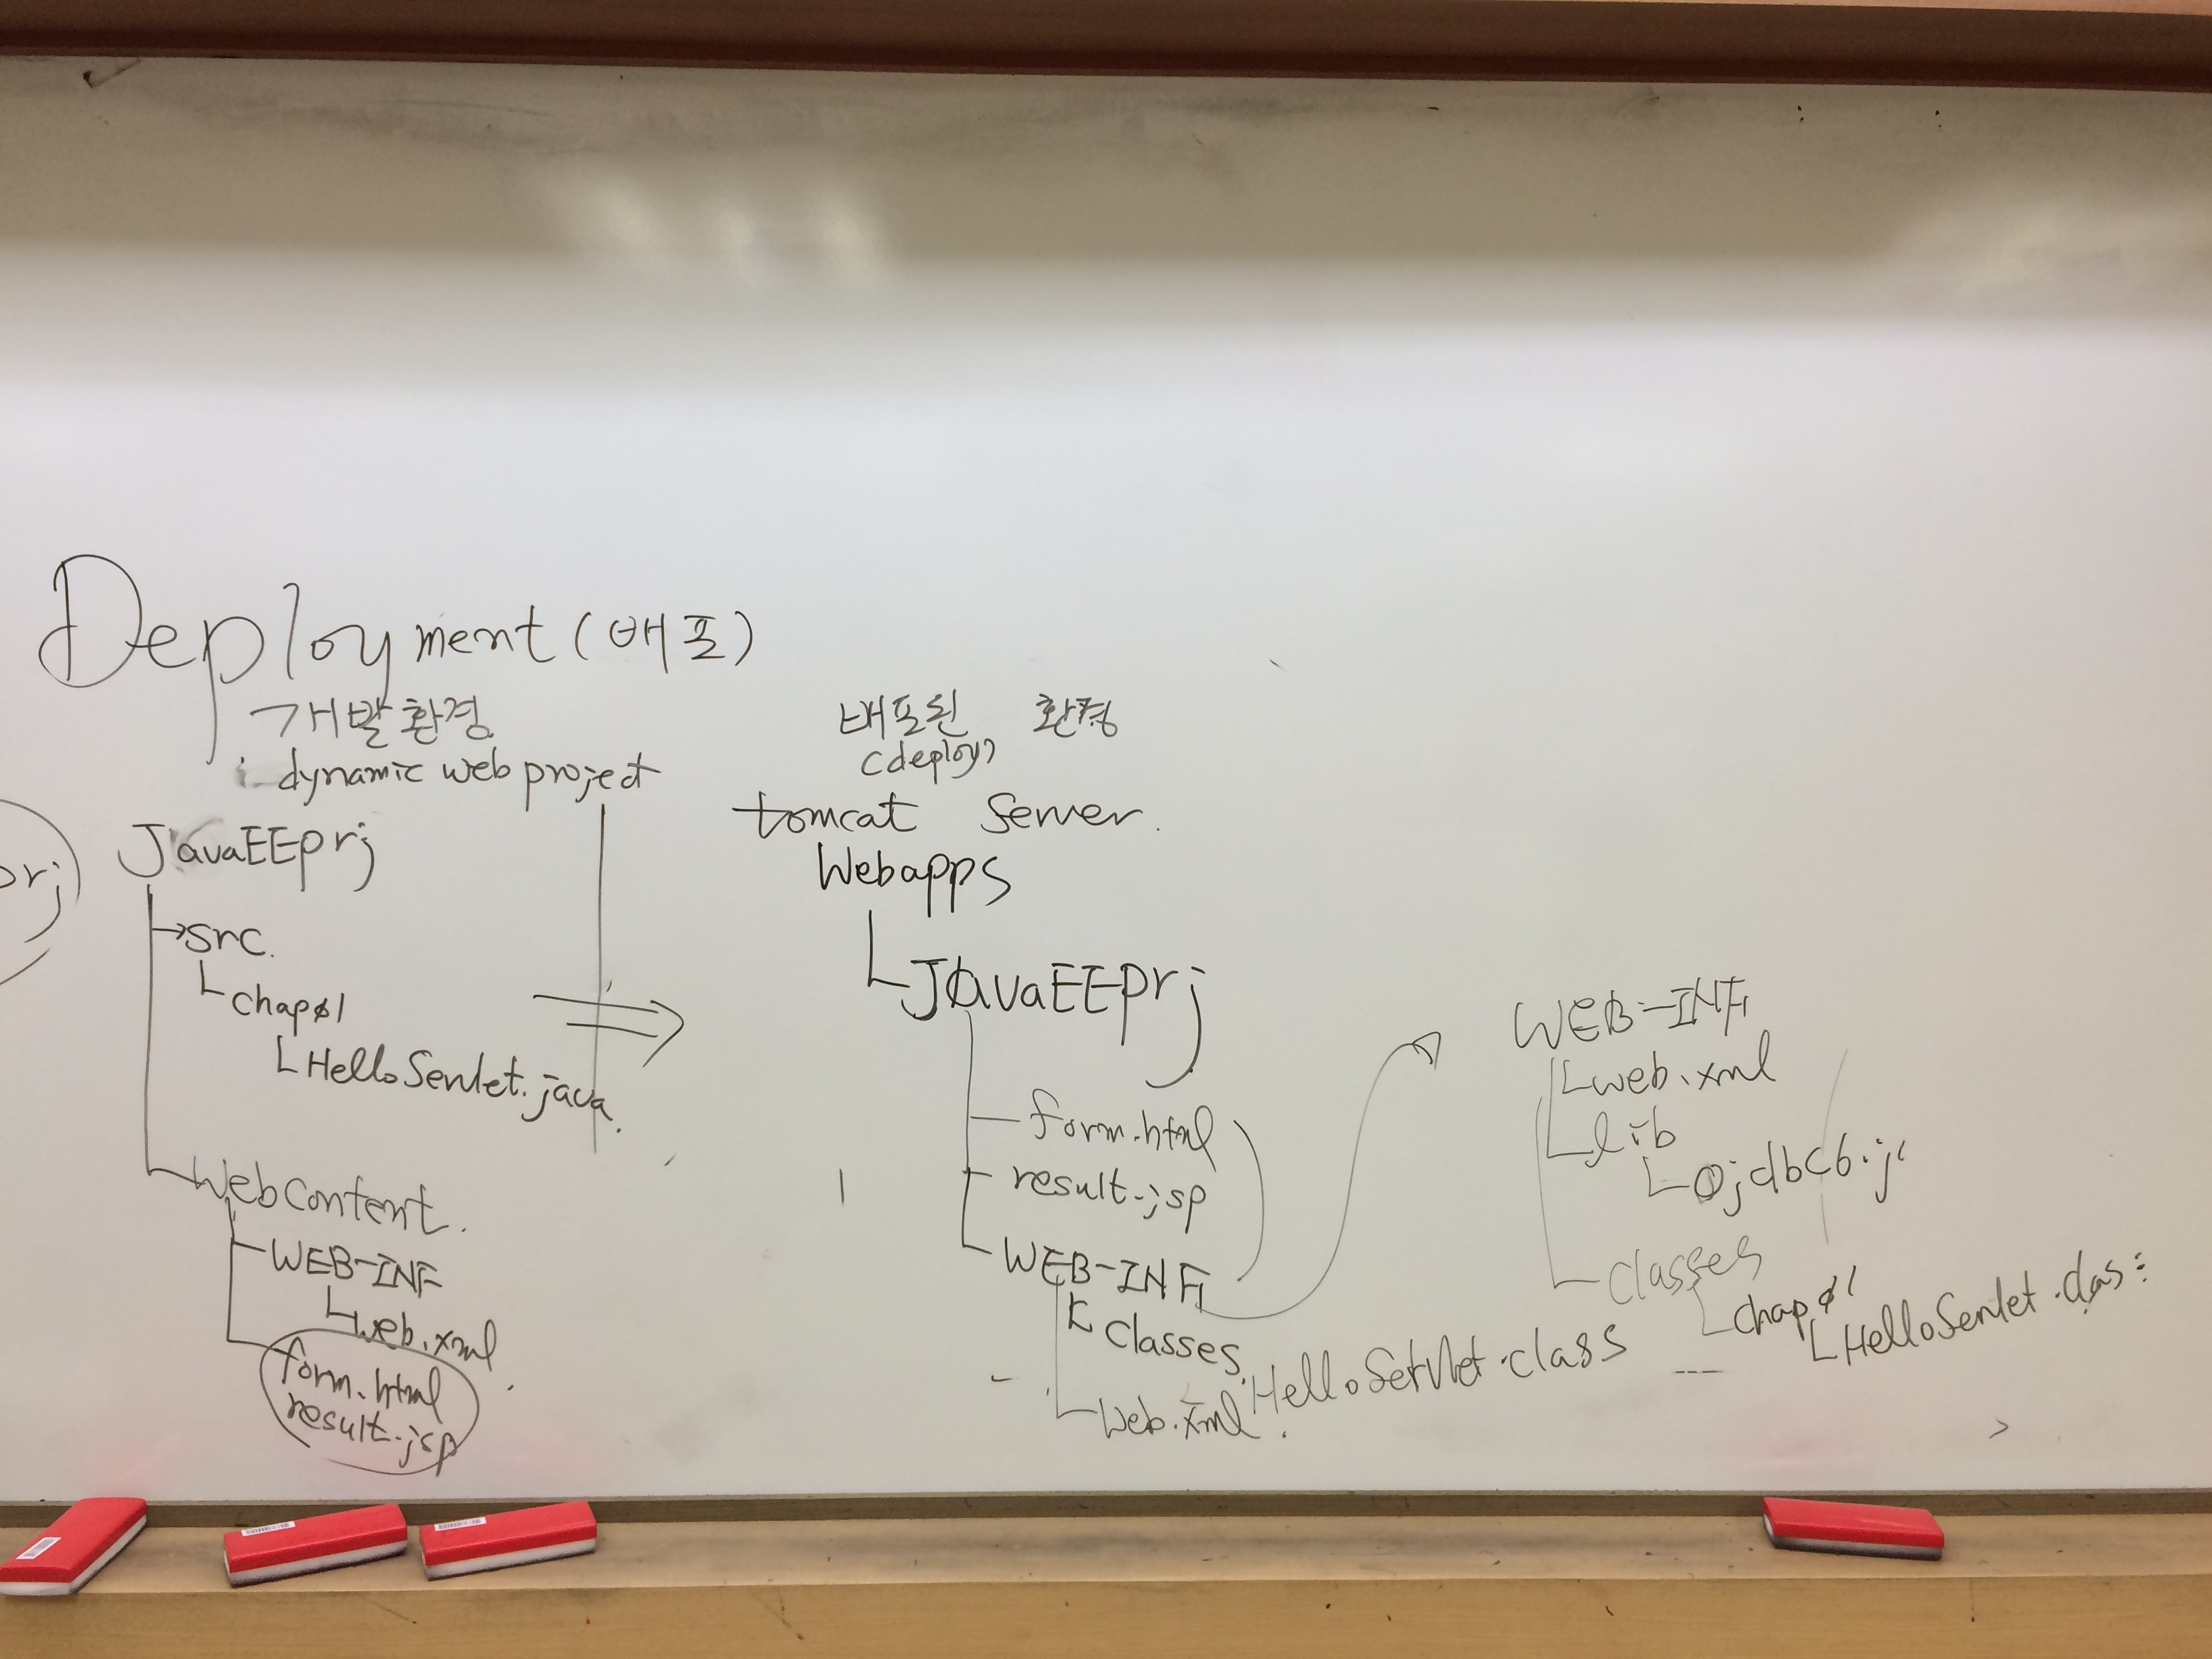 Deployment (배포)
개발환경
: dynamic web project
JavaEEprj
src.
chap01
HelloServlet.java.
WebContent.
WEB-INF
web.xml
form.html
result.jsp
배포된 환경
(deploy)
tomcat Server.
Webapps
JavaEEprj
form.html
result.jsp
WEB-INF
classes.
HelloServlet.class
Web.xml.
WEB-INF
web.xml
lib
classes
chap01
prj